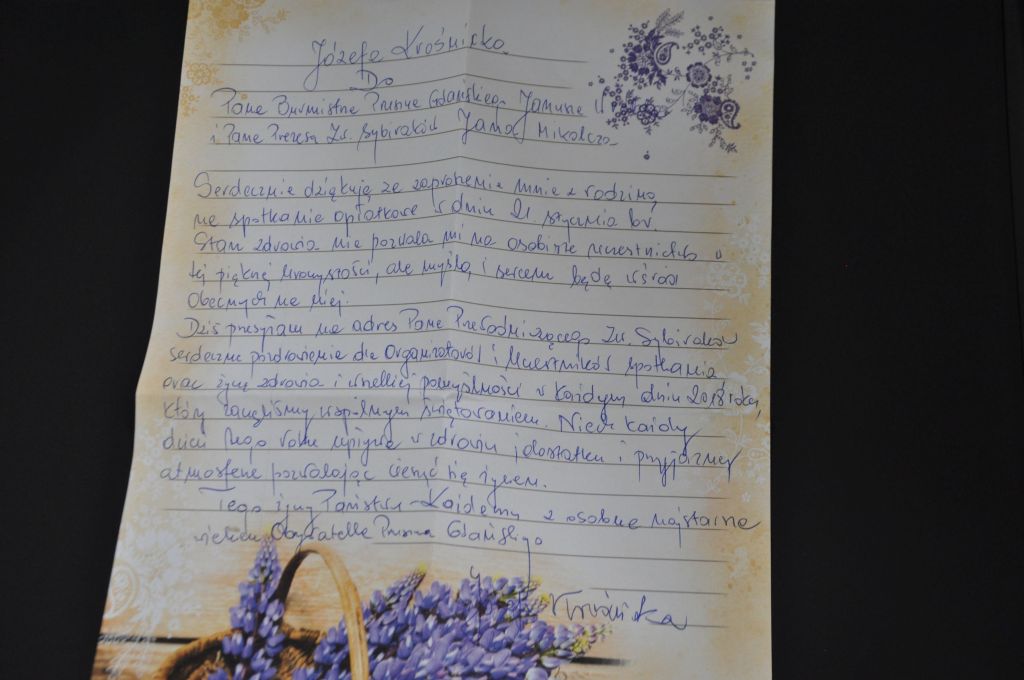 Józefa Krośnicka
Do
Pana Burmistrza Pruszcza Gdańskiego Janusza W
i Pana Prezesa Zw. Sybiraków Jana Mikołcza
Serdecznie dziękuję za zaproszenie mnie z rodziną
na spotkanie opłatkowe w dniu 21. stycznia br.
Stan zdrowia nie pozwala mi na osobiste uczestnictwo w
tej pięknej uroczystości, ale myślą i sercem będę wśród
Obecnych na niej.
Dziś przesyłam na adres Pana Przewodniczącego Zw. Sybiraków
serdeczne pozdrowienia dla Organizatorów i Uczestników spotkania
oraz życzę zdrowia i wszelkiej pomyślności w każdym dniu 2018 roku,
który zaczęliśmy wspólnym świętowaniem. Niech każdy
dzień tego roku upływa w zdrowiu, dostatku i przyjaznej
atmosferze pozwalając cieszyć się życiem.
Tego życzy Państwu - Każdemu z osobna najstarsza
wiekiem Obywatelka Pruszcza Gdańskiego
Krośnicka